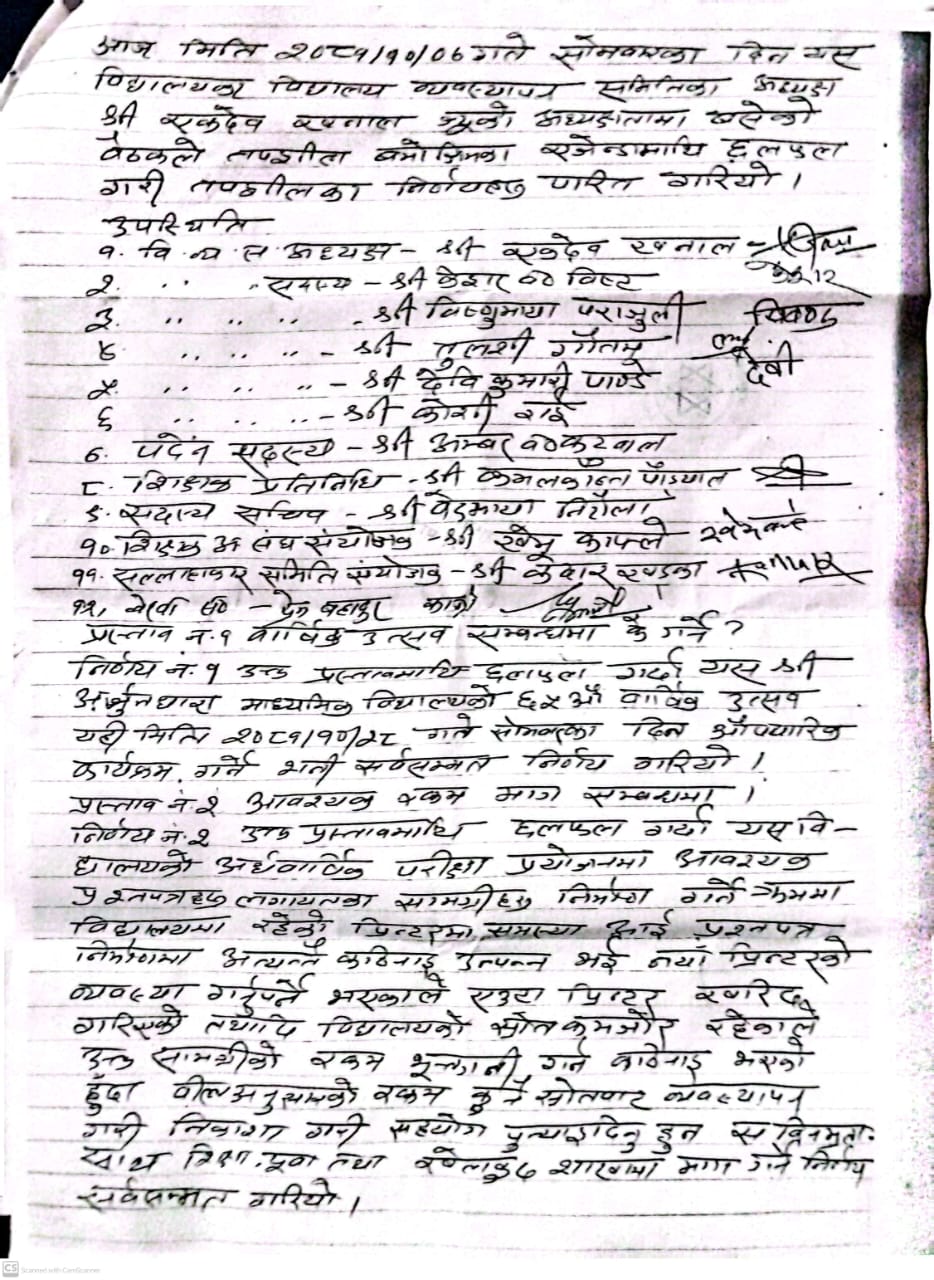 आज मिति २०८१/१०/०७ गते सोमवारका दिन यस
विद्यालयका विद्यालय व्यवस्थापन समितिका अध्यक्ष
श्री एकदेव खनाल ज्यूको अध्यक्षतामा बसेको
बैठकले तपशील बमोजिमका एजेन्डामाथि छलफल
गरी तपशीलका निर्णयहरु पारित गरियो ।
उपस्थिति
१. वि. व्य. स अध्यक्ष - श्री एकदेव खनाल
२. .. .. सदस्य - श्री केदार ब० विष्ट केदार
३. .. .. .. - श्री विष्णुमाया पराजुली
४. .. .. .. - श्री तुलशी गौतम
५. .. .. .. - श्री देवि कुमारी पाण्डे देवी
६ .. .. .. - श्री कोशी राई
७. पदेन सदस्य - श्री अम्बर ब० कटवाल
८. शिक्षक प्रतिनिधि - श्री कमलकान्त पौड्याल
९. सदस्य सचिव - श्री वेदमाया निरौला
१०. शिक्षक अ संघ संयोजक - श्री खेम काफ्ले
११. सल्लाहकार समिति संयोजक - श्री केदार खड्का
१२. - प्रेम बहादुर कार्की
प्रस्ताव नं. १ वार्षिक उत्सव सम्बन्धमा के गर्ने ?
निर्णय नं. १ उक्त प्रस्तावमाथि छलफल गर्दा यस श्री
अर्जुनधारा माध्यमिक विद्यालयको ६५ औं वार्षिक उत्सव
यही मिति २०८१/१०/२८ गते सोमवारका दिन औपचारिक
कार्यक्रम गर्ने भनी सर्वसम्मत निर्णय गरियो ।
प्रस्ताव नं. २ आवश्यक रकम माग सम्बन्धमा ।
निर्णय नं. २ उक्त प्रस्तावमाथि छलफल गर्दा यस वि-
द्यालयको अर्धवार्षिक परीक्षा प्रयोजनमा आवश्यक
प्रश्नपत्रहरु लगायतका सामग्रीहरु निर्माण गर्ने क्रममा
विद्यालयमा रहेको प्रिन्टरमा समस्या आई प्रश्नपत्र
निर्माणमा अत्यन्तै कठिनाइ उत्पन्न भई नयाँ प्रिन्टरको
व्यवस्था गर्नुपर्ने भएकाले एउटा प्रिन्टर खरिद
गरिएको तथापि विद्यालयको स्रोत कमजोर रहेकाले
उक्त सामग्रीको रकम भूक्तानी गर्न कठिनाइ भएको
हुँदा वील अनुसारको रकम कुनै स्रोतबाट व्यवस्थापन
गरी निकाशा गरी सहयोग पुर्‍याइदिनु हुन सविनम्रता-
साथ शिक्षा, युवा तथा खेलकुद शाखामा माग गर्ने निर्णय
सर्वसम्मत गरियो ।